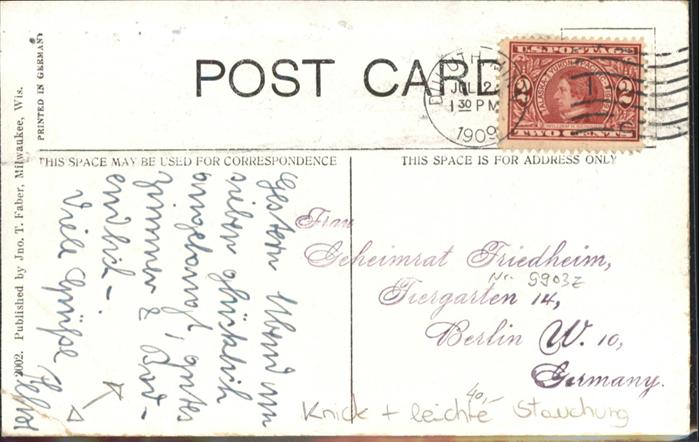 POST CARD
DULUTH
JUL 2
1 30 PM
1909
U.S. POSTAGE
ALASKA-YUKON-PACIFIC 1909
2 2
TWO CENTS
PRINTED IN GERMANY
2002. Published by Jno. T. Faber, Milwaukee, Wis.
THIS SPACE MAY BE USED FOR CORRESPONDENCE
THIS SPACE IS FOR ADDRESS ONLY
Gestern Abend um
sieben glücklich
angelangt, gutes
Zimmer & Bad -
endlich -
Viele Grüße
Frau
Geheimrat Friedheim,
Nr. 9903Z
Tiergarten 14,
Berlin W. 10,
Germany.
40,-
Knick + leichte Stauchung